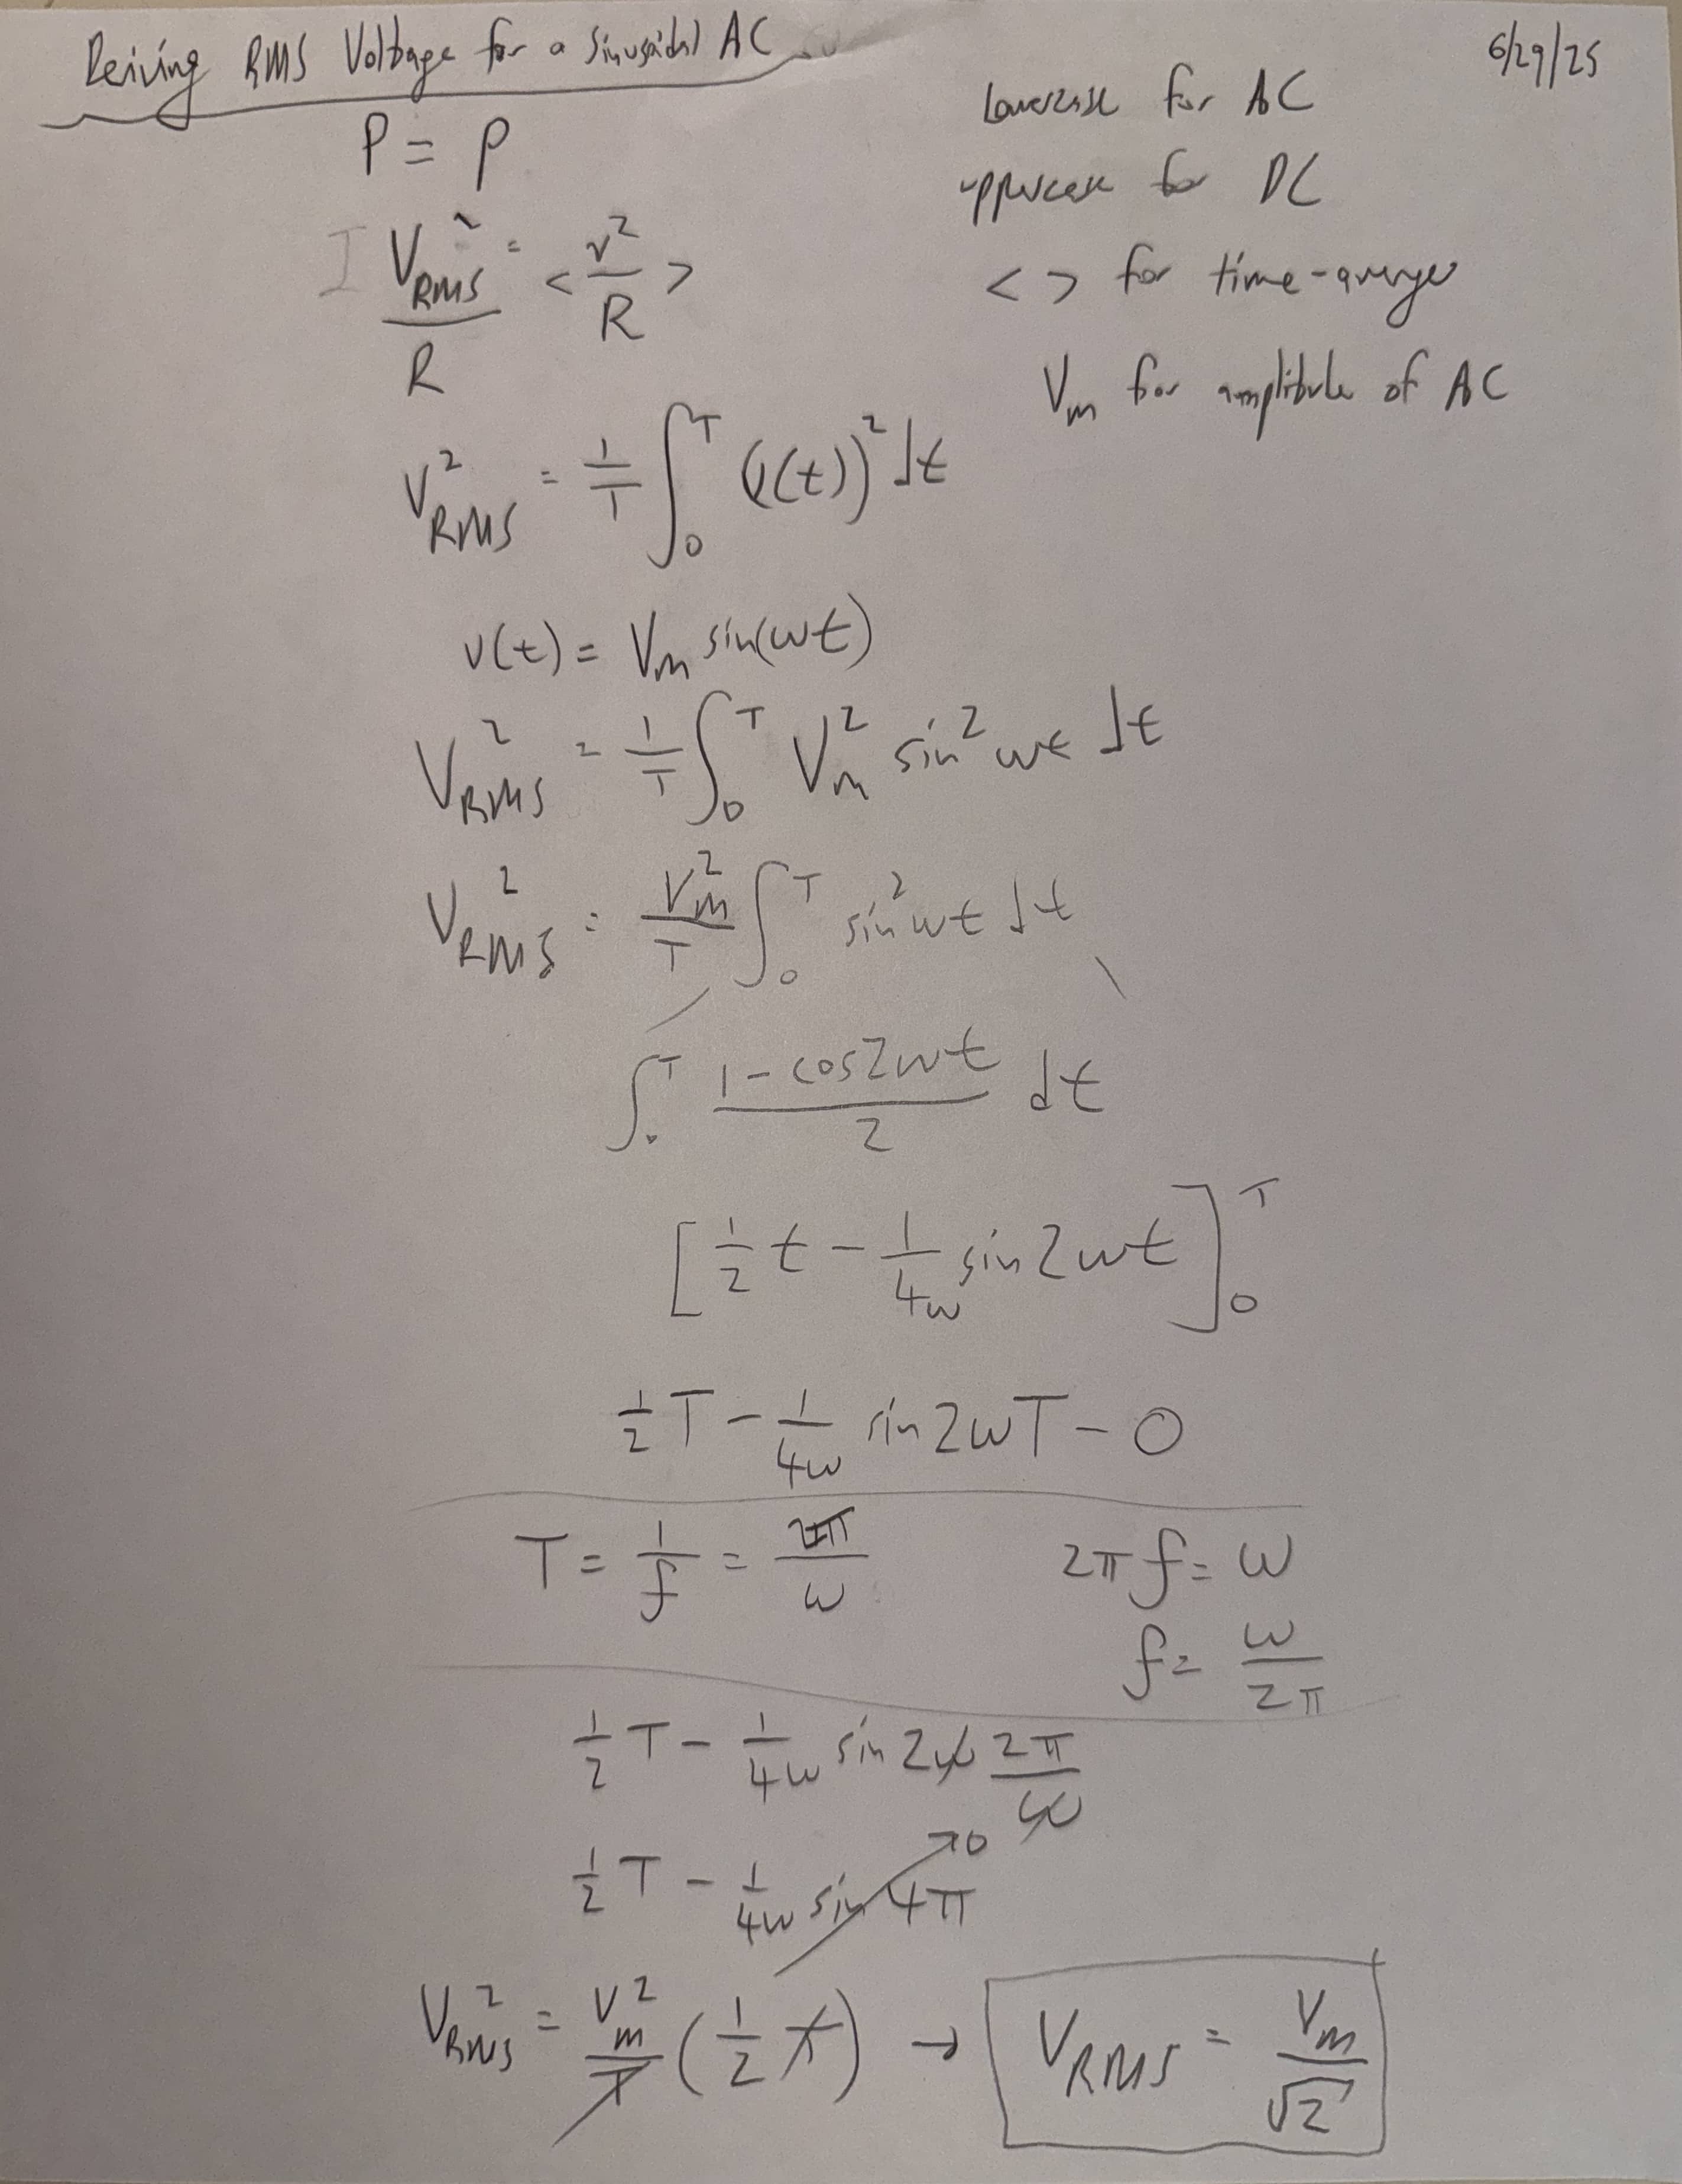 Deriving RMS Voltage for a Sinusoidal AC
6/29/25
P = p
Lowercase for AC
uppercase for DC
< > for time-average
V_m for amplitude of AC
I V_RMS^2 / R = < v^2 / R >
V_RMS^2 = 1/T ∫_0^T (v(t))^2 dt
v(t) = V_m sin(ωt)
V_RMS^2 = 1/T ∫_0^T V_m^2 sin^2 ωt dt
V_RMS^2 = V_m^2 / T ∫_0^T sin^2 ωt dt
∫_0^T (1 - cos2ωt) / 2 dt
[ 1/2 t - 1/4ω sin2ωt ]_0^T
1/2 T - 1/4ω sin2ωT - 0
T = 1/f = 2π/ω
2π f = ω
f = ω/2π
1/2 T - 1/4ω sin 2ω 2π/ω
1/2 T - 1/4ω sin 4π → 0
V_RMS^2 = V_m^2 / T (1/2 T) → V_RMS = V_m / √2